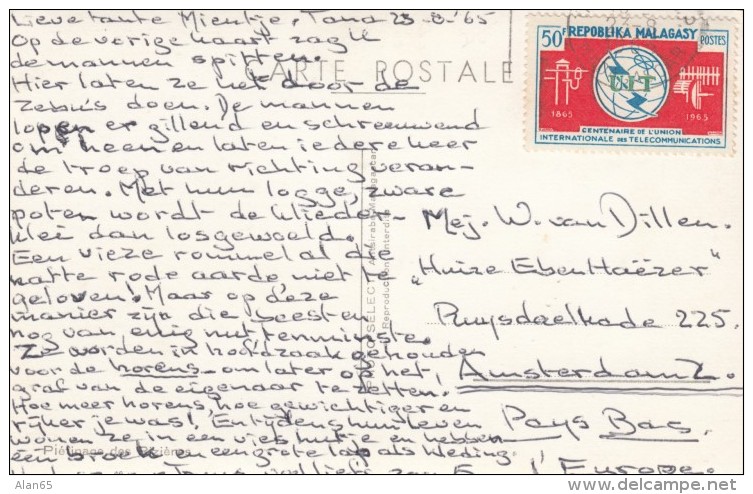 Lieve tante Mientje, Tana 23-8-'65
Op de vorige kaart zag U
de mannen spitten.
Hier laten ze het door de
Zebu's doen. De mannen
lopen er gillend en schreeuwend
omheen en laten iedere keer
de troep van richting veran-
deren. Met hun logge, zware
poten wordt de kleider-
klei dan losgewoeld.
Een vieze rommel al die
natte rode aarde niet te
geloven! Maar op deze
manier zijn die beesten
nog van enig nut tenminste.
Ze worden in hoofdzaak gehouden
voor de horens - om later op het
graf van de eigenaar te zetten!
Hoe meer horens, hoe gewichtiger en
rijker je was! En tijdens hun leven
wonen ze in een vies hutje en hebben
één broek en een grote lap als kleding.
CARTE POSTALE
50F REPOBLIKA MALAGASY
POSTES
23-8
UIT
1865 1965
CENTENAIRE DE L'UNION
INTERNATIONALE DES TELECOMMUNICATIONS
Mej. W. van Dillen.
"Huize Eben Haëzer"
Ruysdaelkade 225.
Amsterdam Z.
Pays Bas.
l'Europe.
Antsirabe (Madagascar)
Reproduction interdite
Piétinage des Rizières
Alan65
delcampe.net